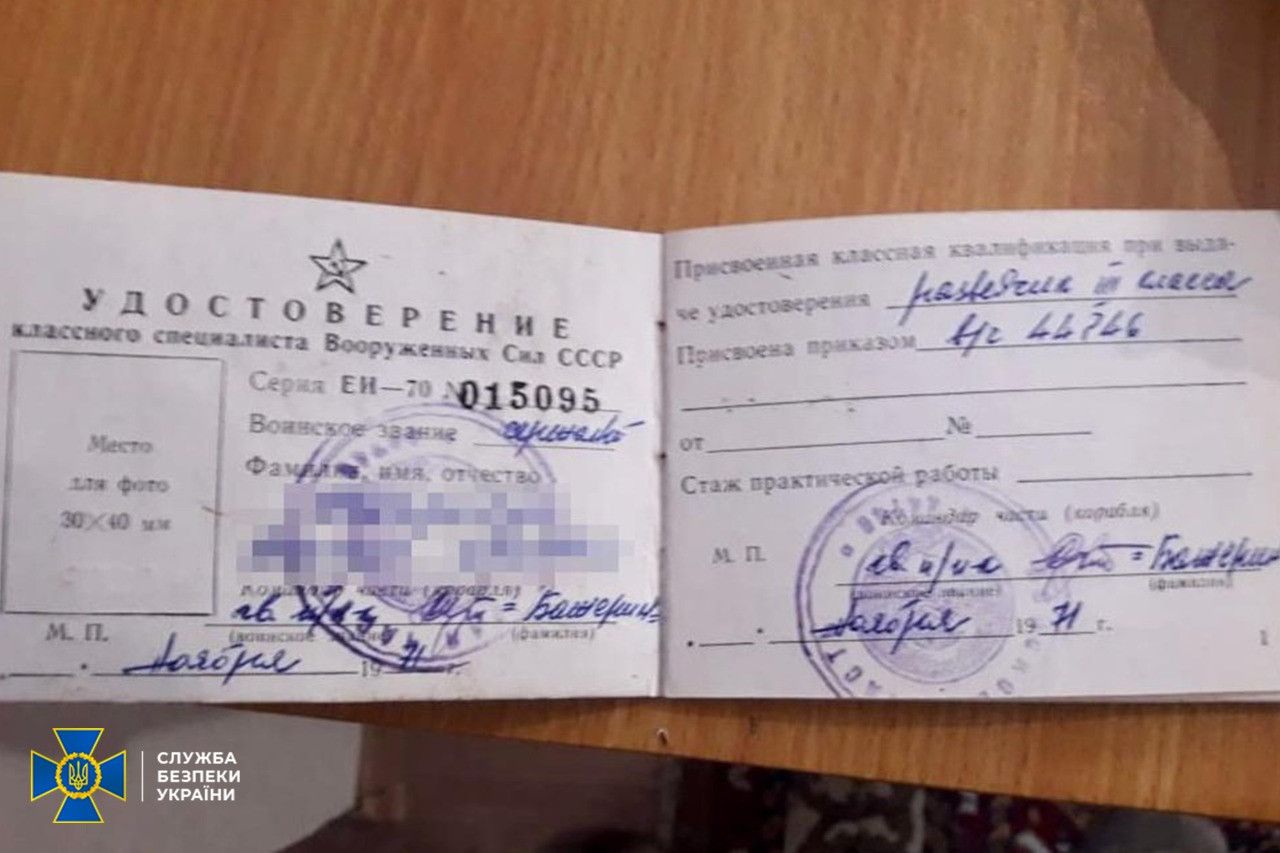 УДОСТОВЕРЕНИЕ
классного специалиста Вооруженных Сил СССР
Серия ЕИ—70 № 015095
Воинское звание
Фамилия, имя, отчество
Место
для фото
30×40 мм
Командир части (корабля)
(воинское звание) (фамилия)
М. П.
Ноября 1971 г.
Присвоенная классная квалификация при выда-
че удостоверения разведчик III класса
Присвоена приказом в/ч 44746
от № 
Стаж практической работы
Командир части (корабля)
М. П.
(воинское звание) (фамилия)
Ноября 1971 г.
1
СЛУЖБА
БЕЗПЕКИ
УКРАЇНИ